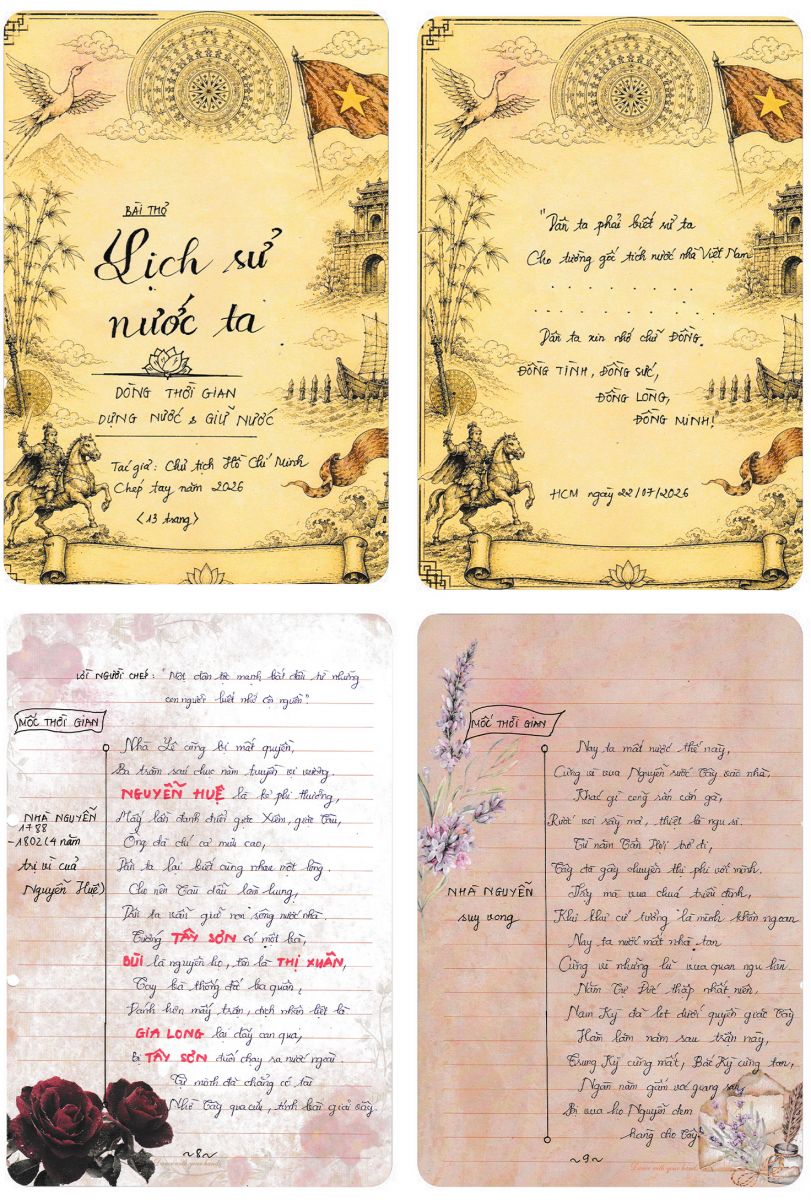 BÀI THƠ
Lịch sử
nước ta
DÒNG THỜI GIAN
DỰNG NƯỚC & GIỮ NƯỚC
Tác giả: Chủ tịch Hồ Chí Minh
Chép tay năm 2026
<13 trang>
"Dân ta phải biết sử ta
Cho tường gốc tích nước nhà Việt Nam
. . . . . . . . .
. . . . . . . . . . .
Dân ta xin nhớ chữ ĐỒNG.
ĐỒNG TÌNH, ĐỒNG SỨC,
ĐỒNG LÒNG,
ĐỒNG MINH!"
HCM ngày 22/07/2026
LỜI NGƯỜI CHÉP: "Một dân tộc mạnh bắt đầu từ những
con người biết nhớ cội nguồn".
MỐC THỜI GIAN
Nhà Lê cũng bị mất quyền,
Ba trăm sáu chục năm truyền vị vương.
NGUYỄN HUỆ là kẻ phi thường,
Mấy lần đánh đuổi giặc Xiêm, giặc Tàu,
NHÀ NGUYỄN
1788
-1802 (4 năm
trị vì của
Nguyễn Huệ)
Ông đà chí cả mưu cao,
Dân ta lại biết cùng nhau một lòng.
Cho nên Tàu dẫu làm hung,
Dân ta vẫn giữ non sông nước nhà.
Tướng TÂY SƠN có một bà,
BÙI là nguyên họ, tên là THỊ XUÂN,
Tay bà thống đốc ba quân,
Đánh hơn mấy trận, địch nhân liệt là
GIA LONG lại dấy can qua,
Bị TÂY SƠN đuổi chạy ra nước ngoài.
Tự mình đã chẳng có tài
Nhờ Tây qua cứu, tính bài giải vây.
~8~
Dance with your hands
MỐC THỜI GIAN
Nay ta mất nước thế này,
Cũng vì vua Nguyễn rước Tây vào nhà,
Khác gì cõng rắn cắn gà,
Rước voi giày mả, thiệt là ngu si.
Từ năm Tân Hợi trở đi,
Tây đã gây chuyện thị phi với mình.
Thấy mà vua chúa triều đình,
Khư khư cứ tưởng là mình khôn ngoan.
NHÀ NGUYỄN
suy vong
Nay ta nước mất nhà tan
Cũng vì những lũ vua quan ngu hèn.
Năm Tự Đức thập nhất niên,
Nam Kỳ đã lọt dưới quyền giặc Tây
Hăm lăm năm sau trận này,
Trung Kỳ cũng mất, Bắc Kỳ cũng tan,
Ngàn năm gấm vóc giang san,
Bị vua họ Nguyễn đem
hàng cho Tây
~9~
Dance with your hand